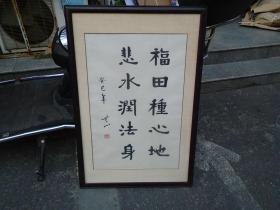 福田種心地
悲水潤法身
癸巳年